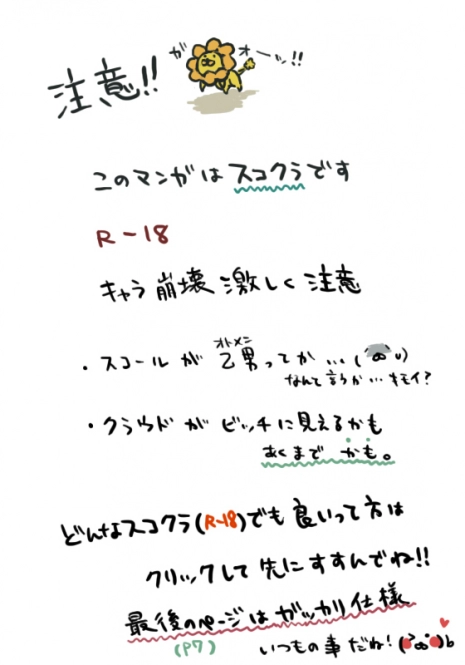 ガオーッ!!
注意!!
このマンガはスコクラです
R-18
キャラ崩壊激しく注意
・スコールが乙男ってか…(´ω`υ)
オトメン
なんて言うか…キモイ?
・クラウドがビッチに見えるかも
あくまでかも。
どんなスコクラ(R-18)でも良いって方は
クリックして先にすすんでね!!
最後のページはガッカリ仕様
(P7)
いつもの事だね!